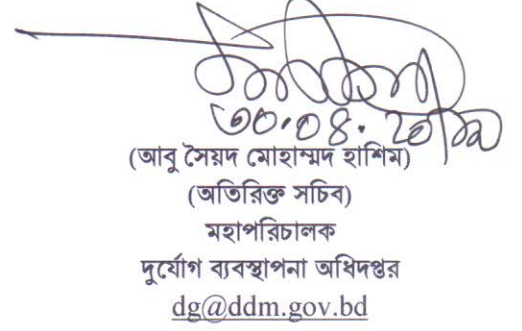 (আবু সৈয়দ মোহাম্মদ হাশিম)
(অতিরিক্ত সচিব)
মহাপরিচালক
দুর্যোগ ব্যবস্থাপনা অধিদপ্তর
dg@ddm.gov.bd